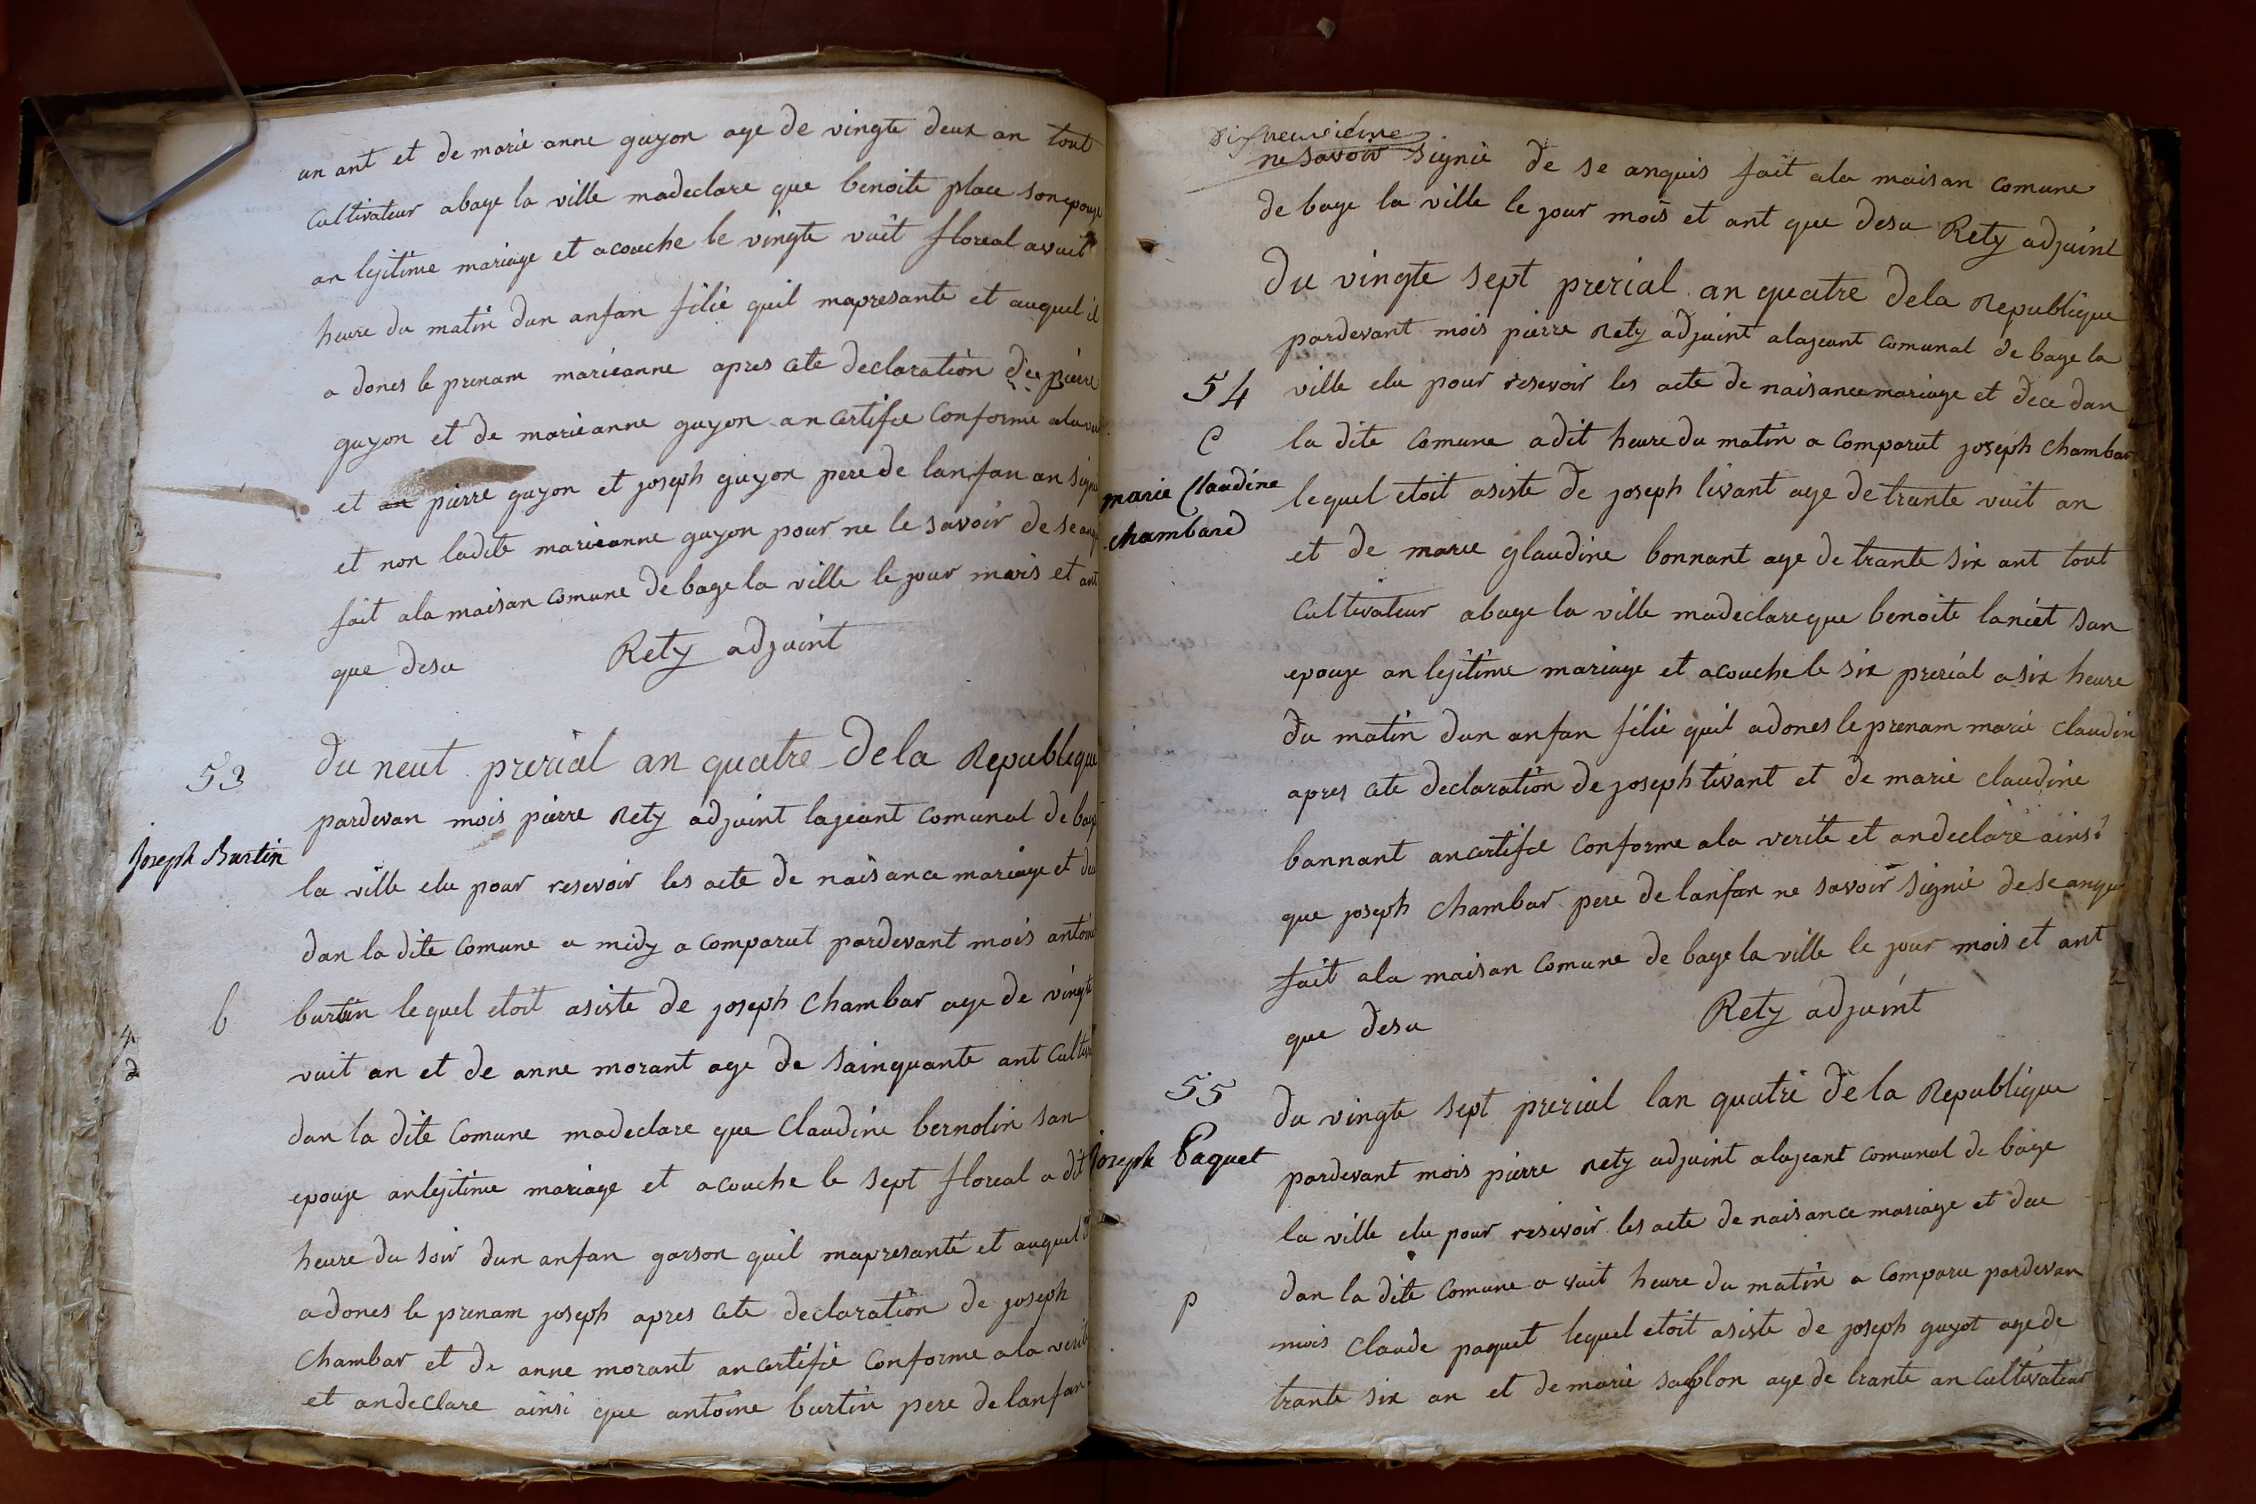 un ant et de marie anne guyon age de vingte deux an tout
Cultivateur abage la ville madeclare que benoite place son epouze
an lejitime mariage et acouche le vingte vuit floreal avuit
heure du matin dun anfan filie quil mapresante et auquel il
a dones le prenam marieanne apres cete declaration de pierre
guyon et de marieanne guyon an certifie Conforme ala
et pierre guyon et joseph guyon pere de lanfan an signe
et non ladite marieanne guyon pour ne le savoir de se
fait ala maisan comune de bage la ville le jour mois et ant
que desu Rety adjuint
53
du neut prerial an quatre de la Republique
pardevan mois pierre Rety adjuint lajeant comunal de bage
Joseph Burtin
la ville elu pour resevoir les acte de naisance mariage et
dan la dite Comune a midy a comparut pardevant mois antoine
b
burtin lequel etoit asiste de joseph Chambar age de vingte
vuit an et de anne morant age de sainquante ant
dan la dite Comune madeclare que Claudine bernolin san
epouze anlejitime mariage et acouche le sept floreal a dit
heure du soir dun anfan garson quil mapresante et auquel il
a dones le prenam joseph apres cete declaration de joseph
Chambar et de anne morant ancertifie Conforme ala verite
et andeclare ainsi que antoine burtin pere de lanfan
disneuvieme
ne savoir signie de se anquis fait ala maisan comune
de bage la ville le jour mois et ant que desu Rety adjuint
Du vingte sept prerial an quatre dela Republique
pardevant mois pierre Rety adjuint alajeant comunal de bage la
54
ville elu pour resevoir les acte de naisance mariage et dece dan
C
la dite Comune adit heure du matin a Comparut joseph Chambar
marie Claudine
chambard
lequel etoit asiste de joseph livant age de trante vuit an
et de marie glaudine bonnant age de trante six ant tout
Cultivateur abage la ville madeclare que benoite laniet san
epouze an lejitime mariage et acouche le six prerial a six heure
du matin dun anfan filie quil adones le prenam marie Claudin
apres cete declaration de joseph tivant et de marie claudine
bannant ancertifie Conforme ala verite et andeclare ainsi
que joseph Chambar pere de lanfan ne savoir signie de se anquis
fait ala maisan Comune de bage la ville le jour mois et ant
que desu Rety adjuint
55
du vingte sept prerial lan quatre de la Republique
Joseph Paquet
pardevant mois pierre rety adjuint alajeant comunal de bage
la ville elu pour resevoir les acte de naisance mariage et dece
dan la dite Comune a vuit heure du matin a Comparu pardevan
p
mois Claude paquet lequel etoit asiste de joseph guyot age de
trante six an et de marie sablon age de trante an Cultivateur